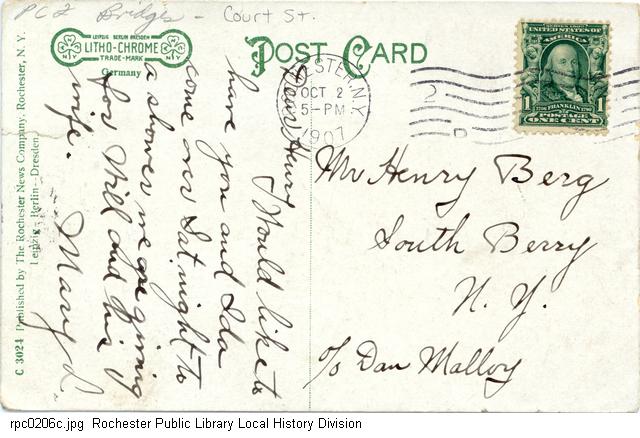 PC2 Bridges - Court St.
LEIPZIG BERLIN DRESDEN
LITHO-CHROME
TRADE-MARK
Germany
POST CARD
OCT 2
5-PM
1907
2
D
SERIES 1902
UNITED STATES OF
AMERICA
1706 FRANKLIN 1790
1 1
POSTAGE
ONE CENT
C 3024 Published by The Rochester News Company, Rochester, N. Y.
Leipzig - Berlin - Dresden
I would like to
have you and Ida
come over Sat. night to
a shower we are giving
for Will and his
wife.
Mary L.
Mr Henry Berg
South Berry
N. Y.
c/o Dan Malloy
rpc0206c.jpg Rochester Public Library Local History Division